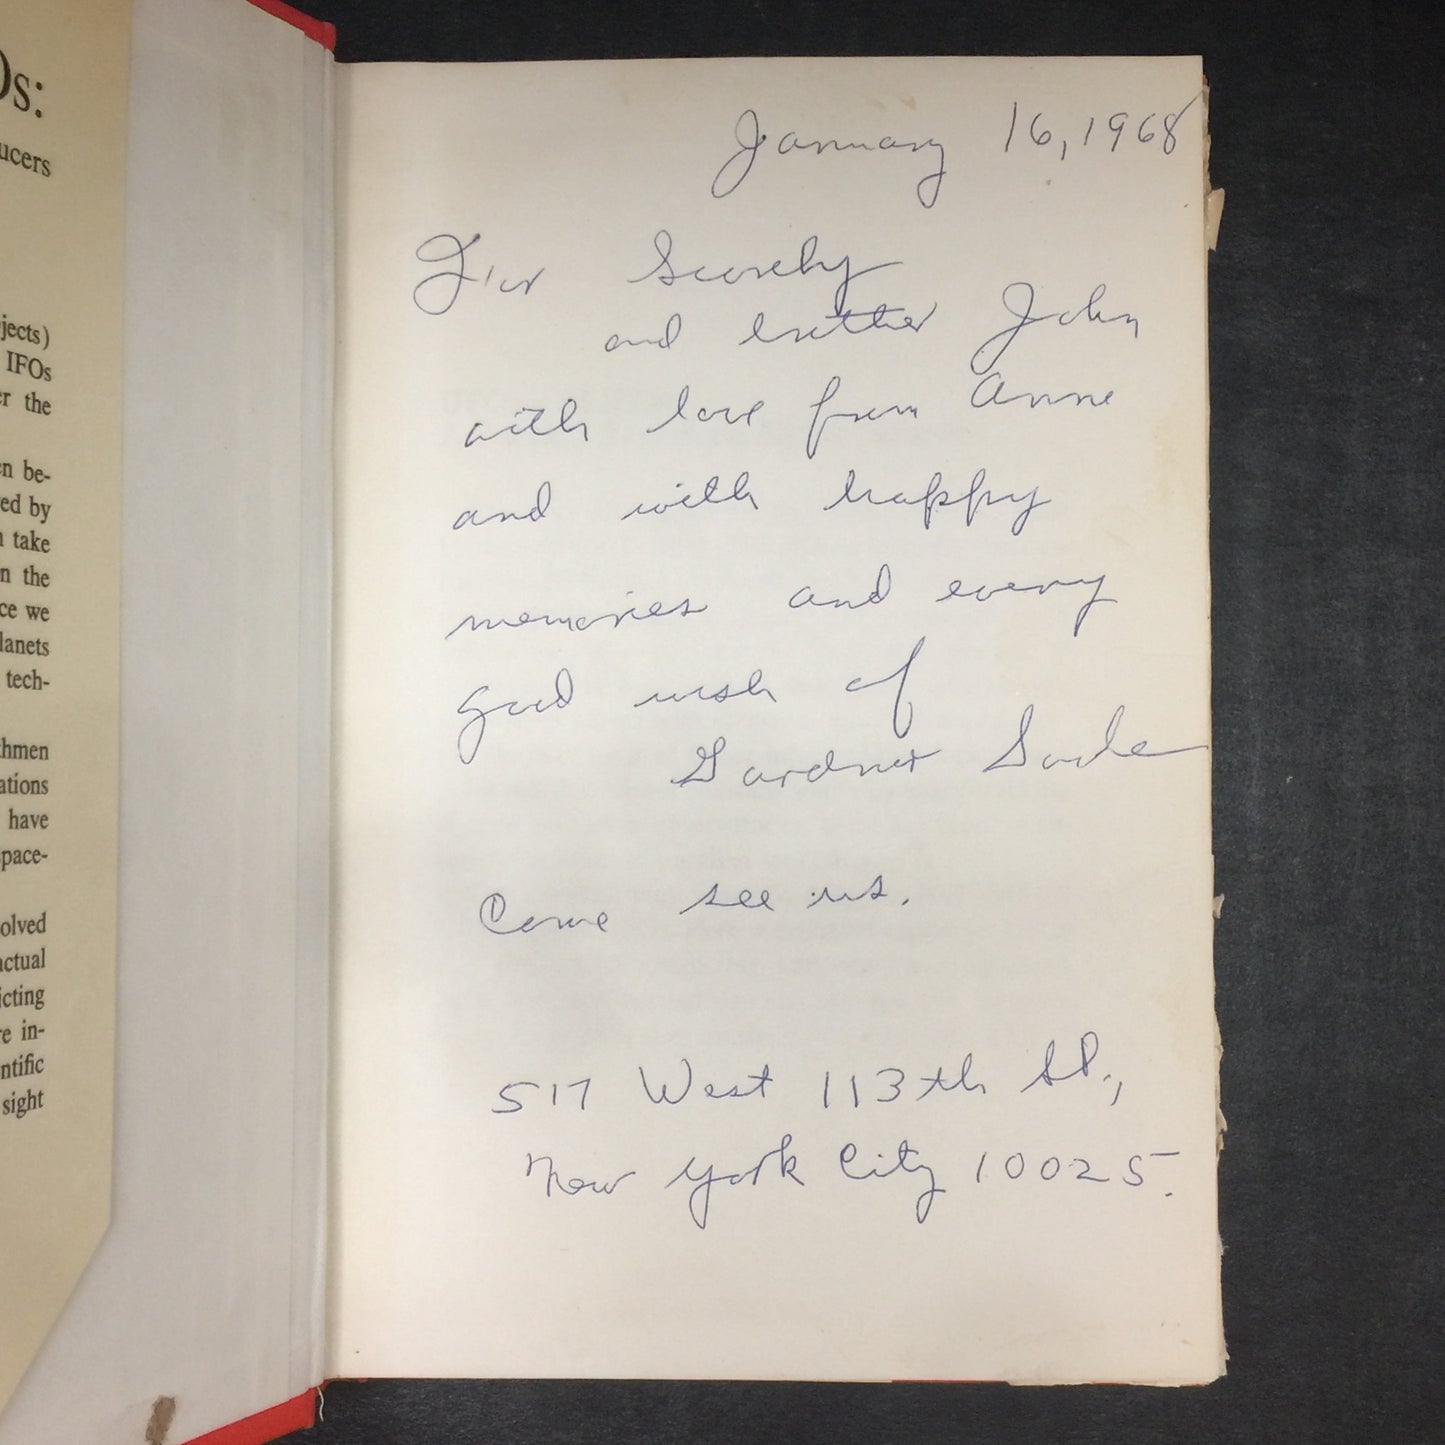 Os:
ucers
jects)
IFOs
er the
en be-
ed by
take
n the
ce we
lanets
tech-
thmen
ations
have
space-
olved
actual
icting
re in-
ntific
sight
January 16, 1968
For
and brother John
with love from Anne
and with happy
memories and every
good wish of
Gardner Soule
Come see us.
517 West 113th St.,
New York City 10025.